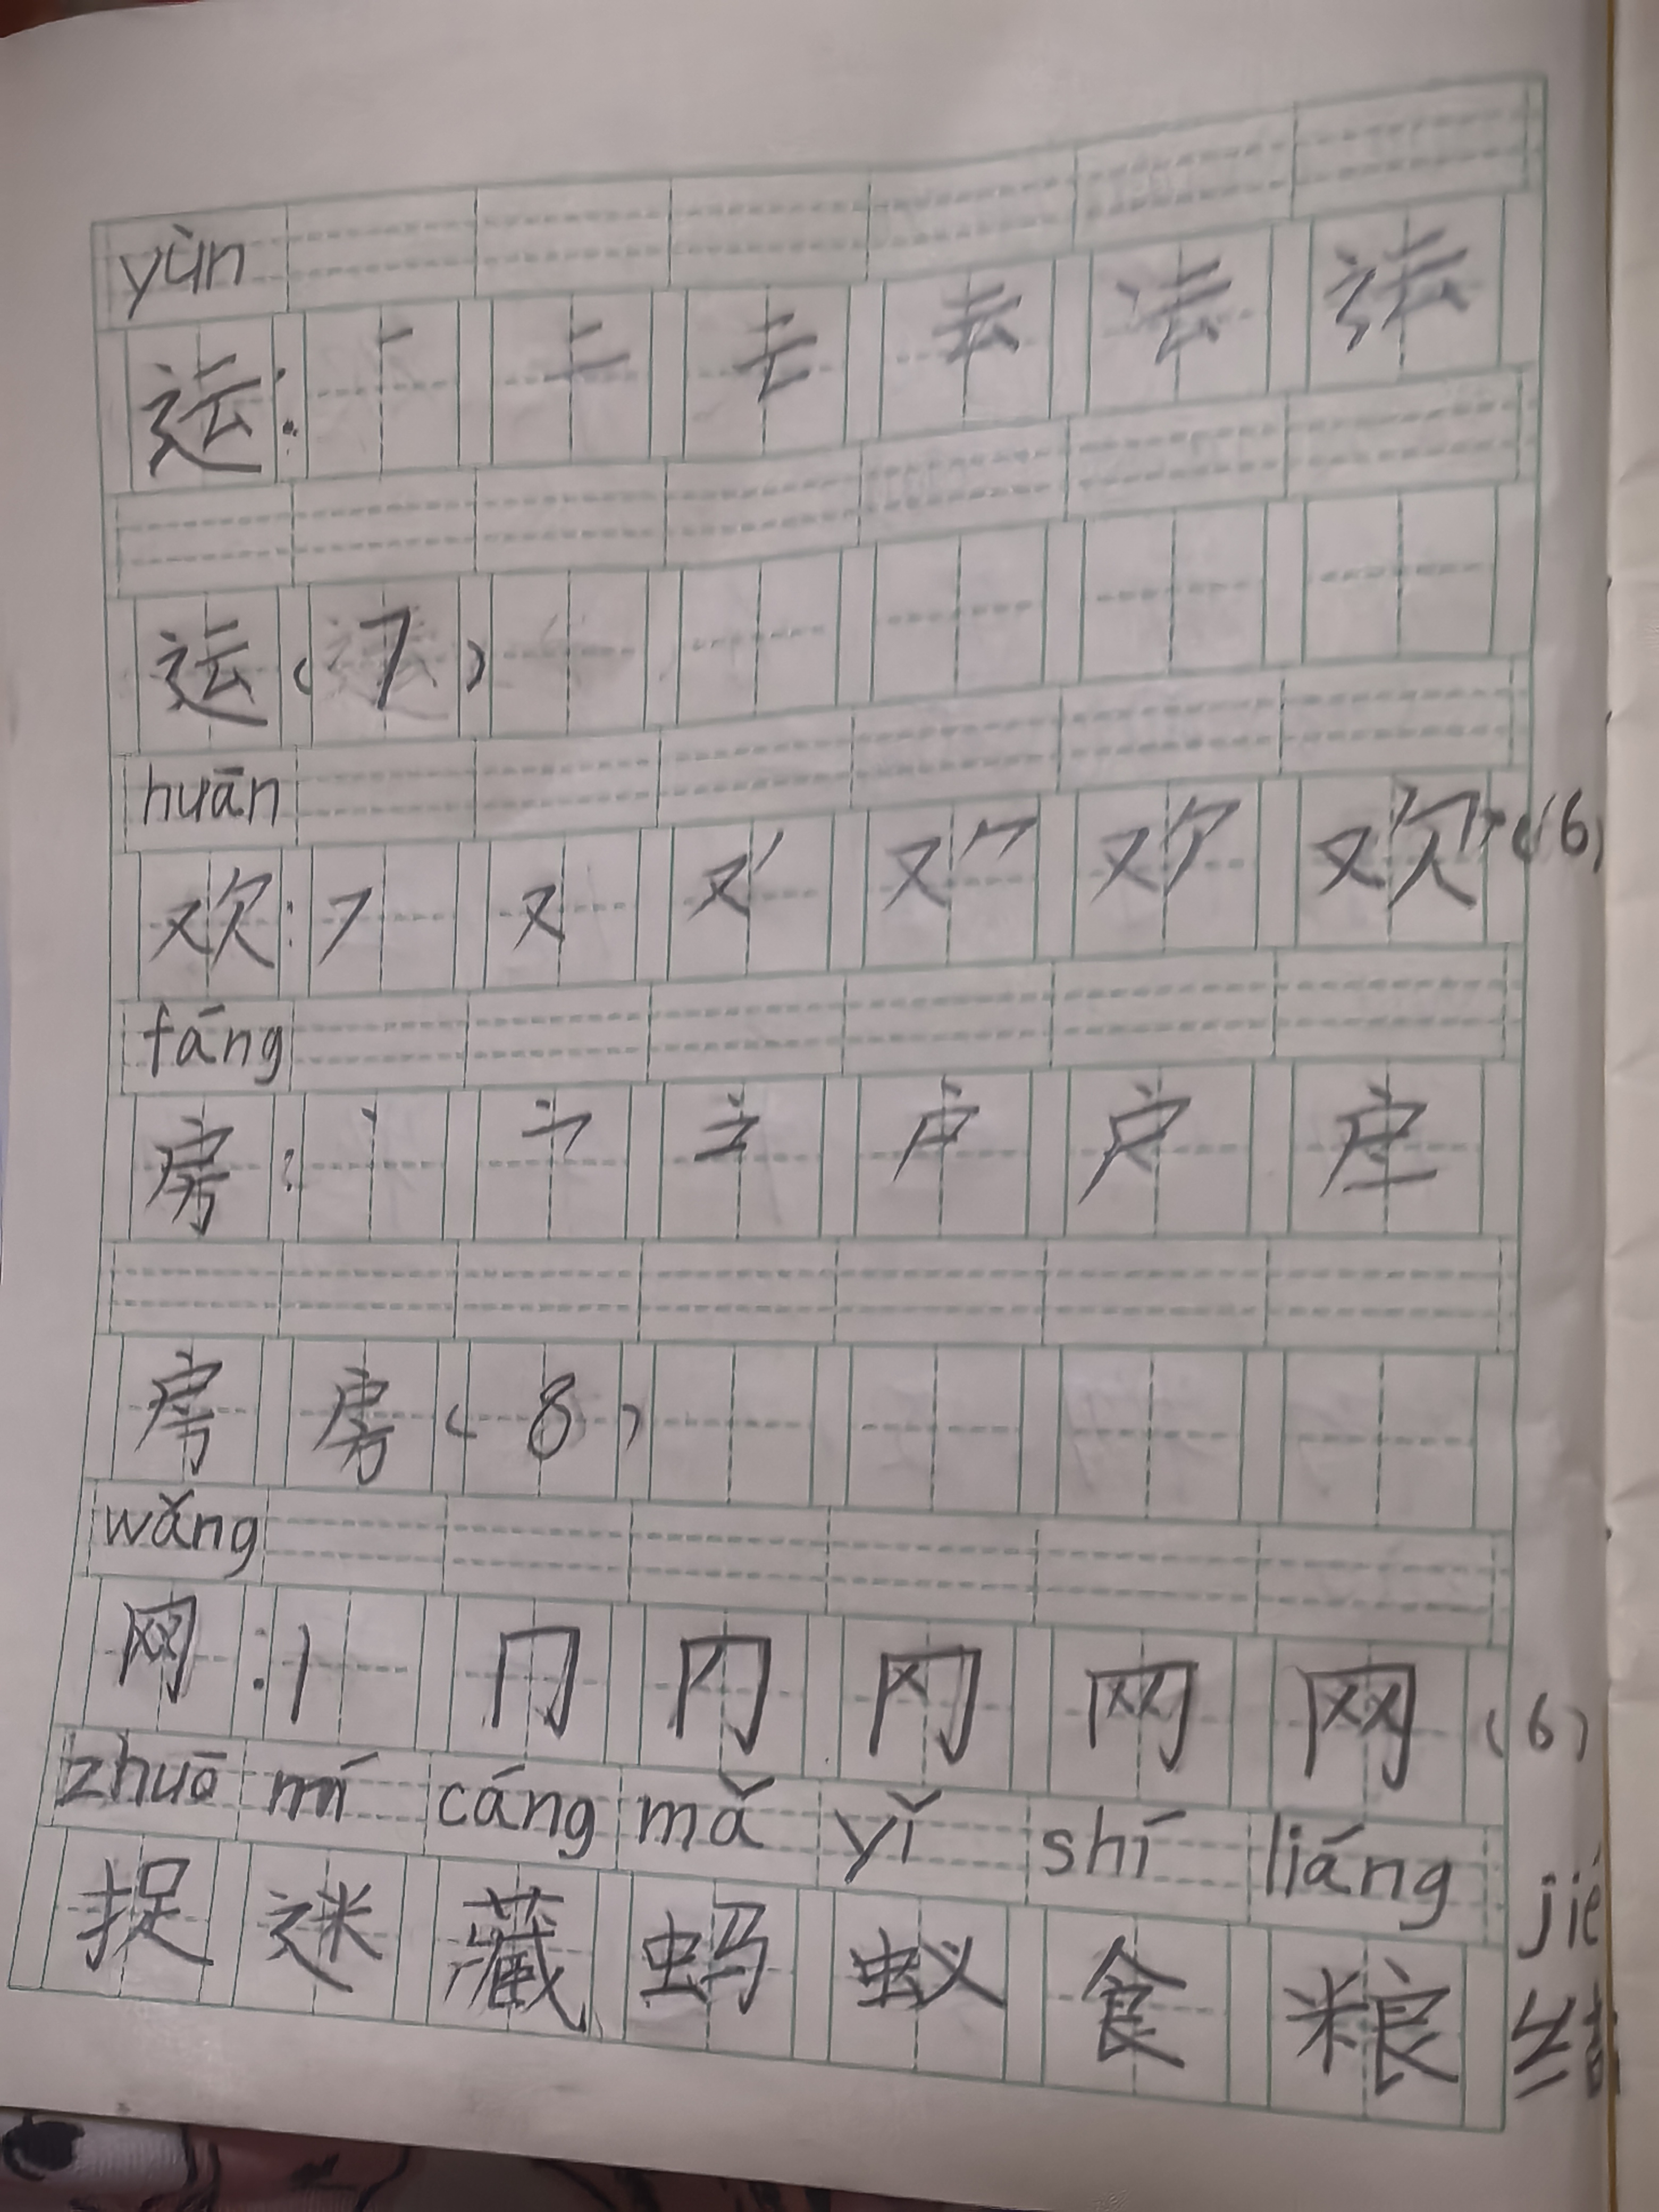 yùn
运:
运(7)
huān
欢: ㇇ 又 欢(6)
fáng
房: 丶 户
房 房(8)
wǎng
网: 丨 冂 网 网(6)
zhuō mí cáng mǎ yǐ shí liáng jié
捉 迷 藏 蚂 蚁 食 粮 结